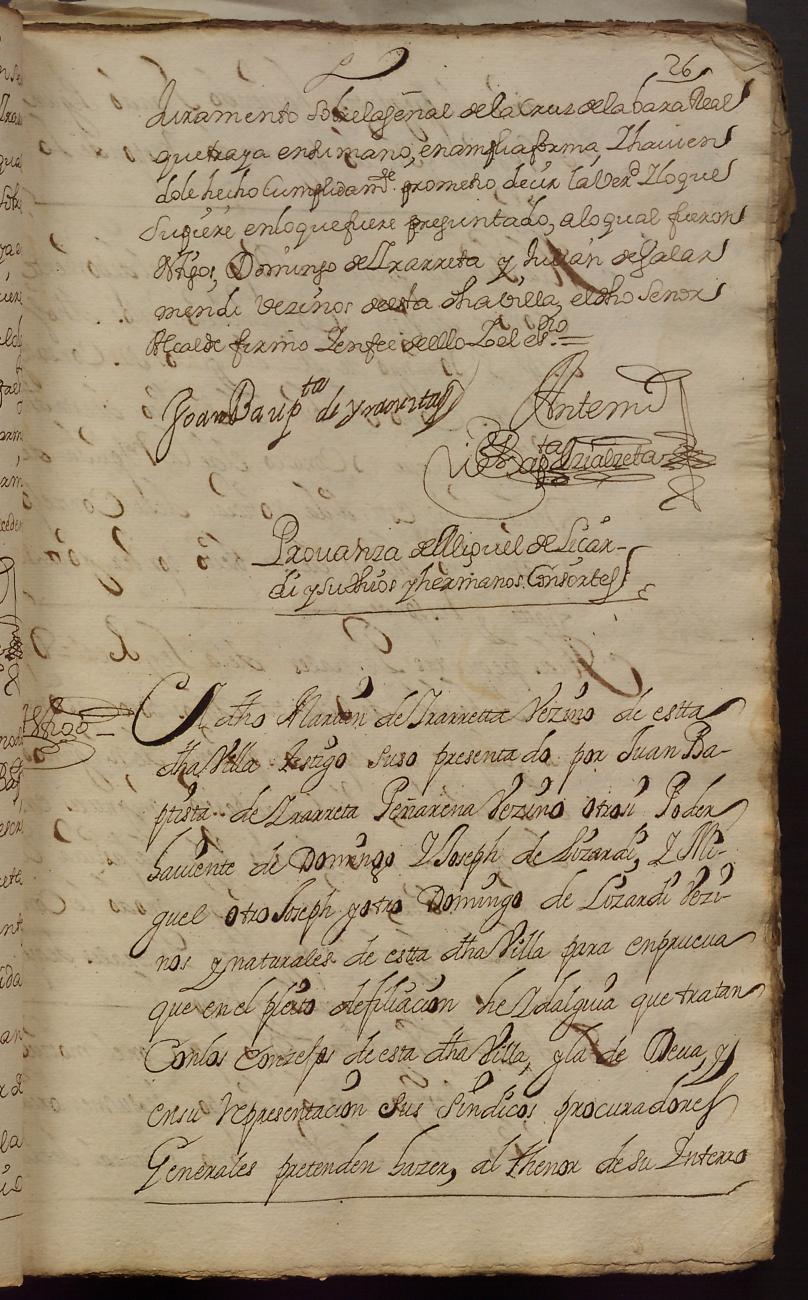 26
Juramento sobre la señal de la Cruz de la bara Real
que traya en su mano, en amplia forma, Y havien
dole hecho Cumplidamte. prometio decir la Verd Y lo que
Supiere en lo que fuere preguntado, a lo qual fueron
ttigos, Domingo de Yrarreta y Julian de Galar
mendi Vezinos de esta dha villa, el dho Señor
Alcalde firmo Y en fee de ello Yo el esno.=
Joan Bapta de
Antemi
Bapta
Provanza de Miguel de Licar-
di y su hijos y hermanos Consortes
El dho Martin de Yrarretta Vezino de estta
dha Villa testigo suso presentado por Juan Ba-
ptista de Yrarreta Peñarena Vezino otrosi Poder
haviente de Domingo Y Joseph de Lizardi, Y Mi-
guel otro Joseph y otro Domingo de Lizardi Vezi-
nos y naturales de estta dha Villa para en prueua
que en el pleito de filiacion he Ydalguia que tratan
Con los Conzejos de esta dha Villa, y la de Deua, y
en su representacion sus Sindicos procuradores
Generales pretenden hazer, al thenor de su Ynterro